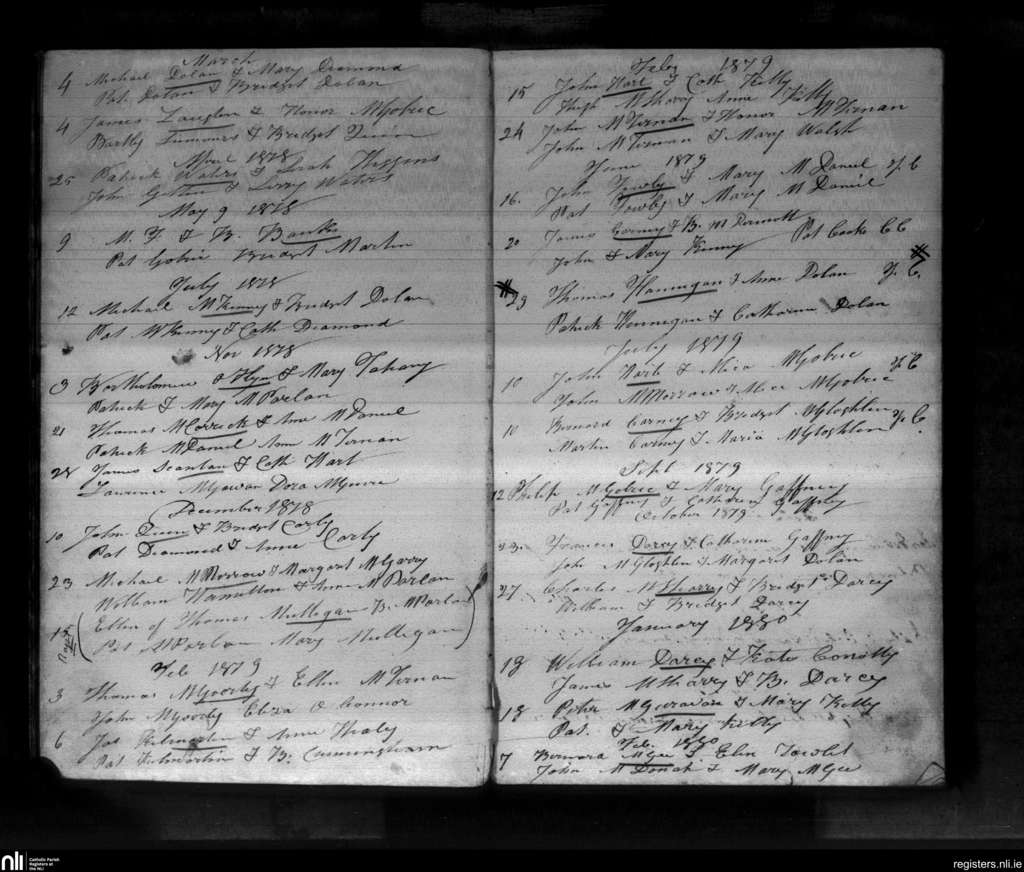 March
4 Michael Dolan & Mary Diamond
Pat Dolan & Bridget Dolan
4 James & Honor McGobric
Bartly & Bridget
April 1878
25 Patrick Waters & Sarah Higgins
John & Waters
May 9 1878
9 M. F & B. Banks
Pat Bridget Martin
July 1878
12 Michael McKenny & Bridget Dolan
Pat McKenny & Cath Diamond
Nov 1878
3 Bartholomew Flyn & Mary
Patrick & Mary McParlan
21 Thomas McCorrick & Anne McDaniel
Patrick McDaniel Anne McTernan
28 James Scanlan & Cath Hart
Laurence McGowan Dora McGuire
December 1878
10 John Quin & Bridget Carty
Pat Diamond & Anne Carty
23 Michael McMorrow & Margaret McGarry
William Hamilton & Anne McParlan
Ellen of Thomas Mulligan B. McParlan
Pat McParlan Mary Mulligan
Feb 1879
3 Thomas McGoorty & Ellen McTernan
John McGoorty Eliza O Connor
6 Jas Kilmartin & Anne Healy
Pat Kilmartin & B. Cunningham
Feby 1879
15 John Hart & Cath Kelly
Hugh McSharry Anne Kelly
24 John McTernan & Honor McTernan
John McTernan & Mary Walsh
June 1879
16. John Towly & Mary McDaniel F. C
Pat Towly & Mary McDaniel
20 James & B. McDermott
John & Mary Kenny Pat Cooke CC
# 29 Thomas Hannigan & Anne Dolan F. C. #
Patrick Hennegan & Catharine Dolan
July 1879
10 John Hart & Alice McGobric F. C
John McMorrow & Alice McGobric
10 Bernard Carney & Bridget McGloghlen F. C.
Martin Carney & Maria McGloghlen
Sept 1879
12 Philip McGobric & Mary Gaffney
Pat Gaffney & Catharine Gaffney
October 1879
23. Francis Darcy & Catharine Gaffney
John McGloghlen & Margaret Dolan
27 Charles McSharry & Bridget Darcy
William & Bridget Darcy
January 1880
18 William Darcy & Kate Conolly
James McSharry & B. Darcy
18 Peter & Mary Kelly
Pat. & Mary Kelly
Feb. 1880
7 Bernard McGee & Ellen
John & Mary McGee
nli
Catholic Parish
Registers at
the NLI
registers.nli.ie